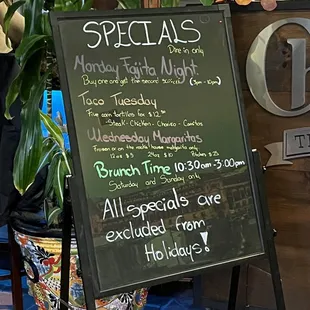 SPECIALS
Dine in only
Monday Fajita Night
Buy one and get the second 50% off! (3pm - 10pm)
Taco Tuesday
Five corn tortillas for $12.
Steak - Chicken - Chorizo - Carnitas
Wednesday Margaritas
Frozen or on the rocks house margarita only
12oz $5 24oz $10 Pitchers $25
Brunch Time 10:30am - 3:00pm
Saturday and Sunday only
All specials are
excluded from
Holidays!